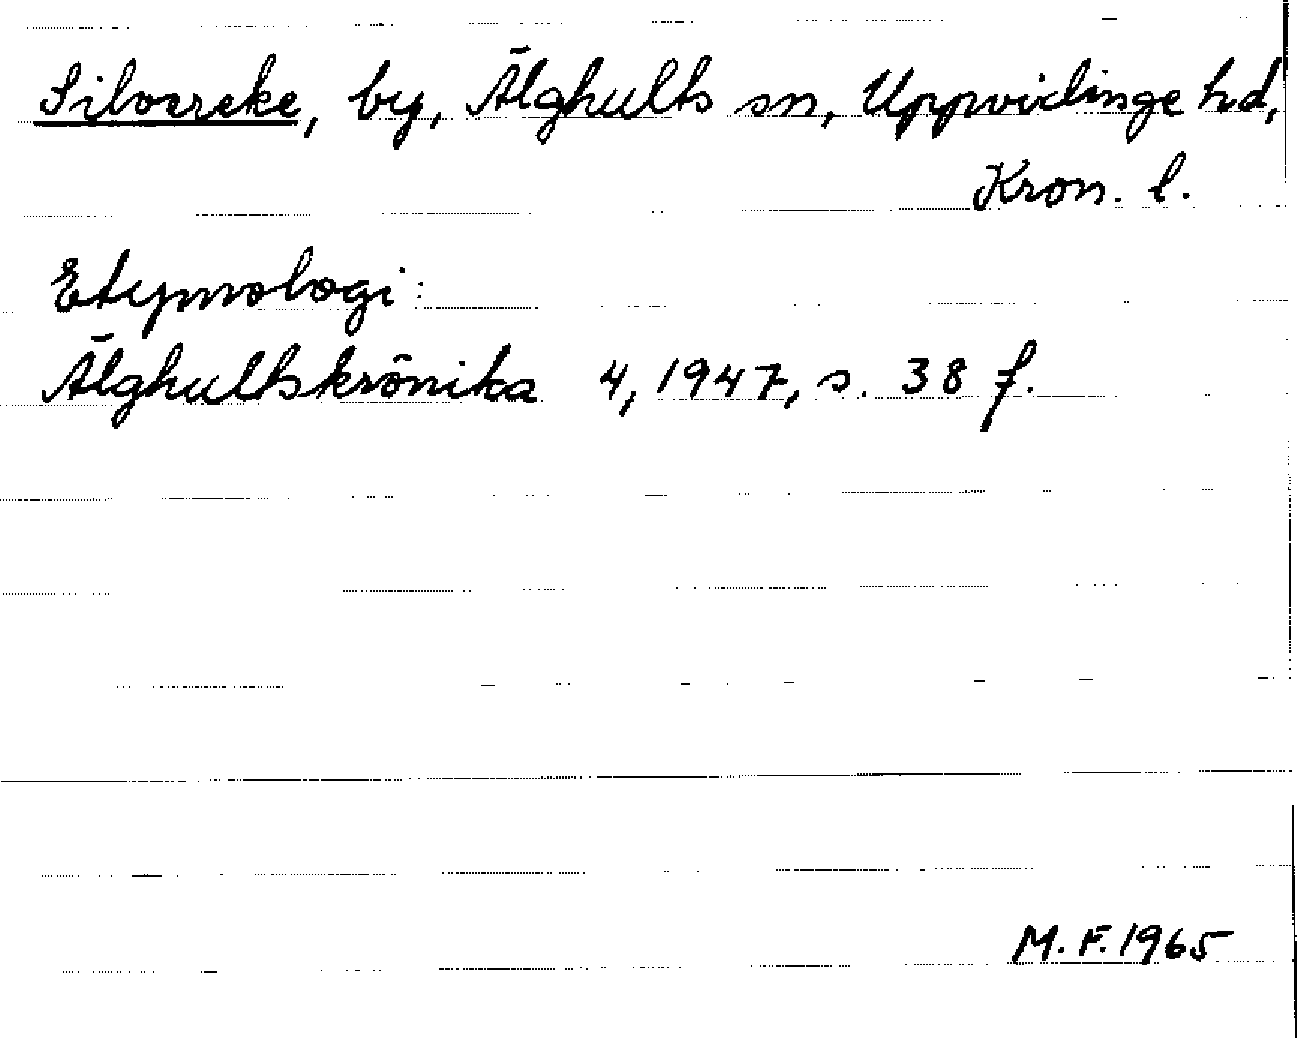 Silvereke, by, Älghults sn, Uppvidinge hd,
Kron. l.
Etymologi:
Älghultskrönika 4, 1947, s. 38 f.
M. F. 1965